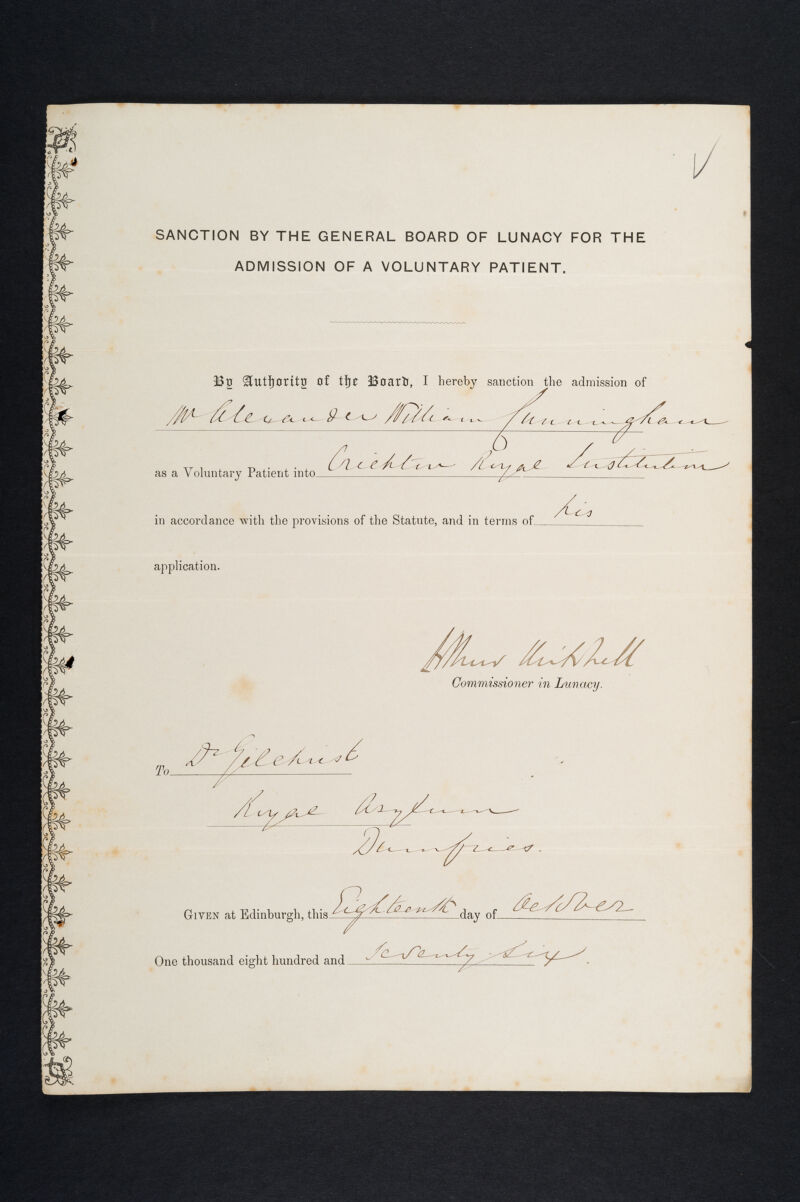 V
SANCTION BY THE GENERAL BOARD OF LUNACY FOR THE
ADMISSION OF A VOLUNTARY PATIENT.
By Authority of the Board, I hereby sanction the admission of
Mr Alexander William Cunningham
as a Voluntary Patient into Crichton Royal Institution
in accordance with the provisions of the Statute, and in terms of his
application.
Arthur Mitchell
Commissioner in Lunacy.
To Dr Gilchrist
Royal Asylum
Dumfries.
GIVEN at Edinburgh, this Eighteenth day of October
One thousand eight hundred and Seventy Six.